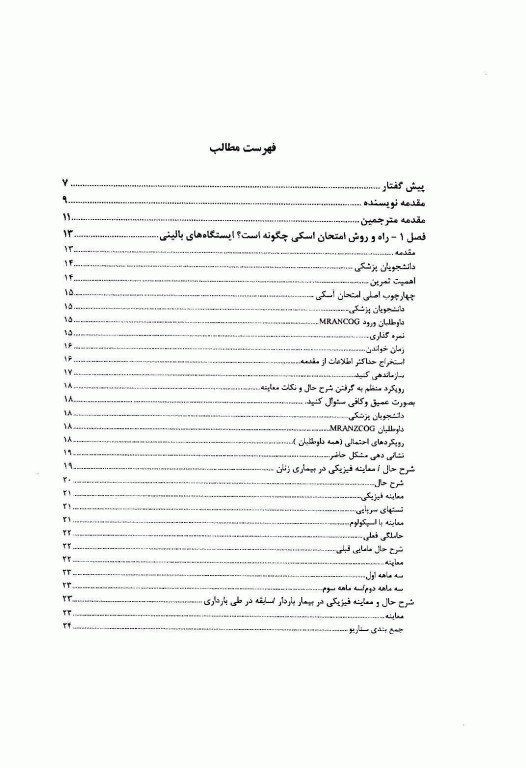 فهرست مطالب
پیش گفتار ۷
مقدمه نویسنده ۹
مقدمه مترجمین ۱۱
فصل ۱ - راه و روش امتحان اسکی چگونه است؟ ایستگاه‌های بالینی ۱۳
مقدمه ۱۳
دانشجویان پزشکی ۱۴
اهمیت تمرین ۱۴
چهارچوب اصلی امتحان آسکی ۱۵
دانشجویان پزشکی ۱۵
داوطلبان ورود MRANCOG ۱۵
نمره گذاری ۱۵
زمان خواندن ۱۶
استخراج حداکثر اطلاعات از مقدمه ۱۶
سازماندهی کنید ۱۷
رویکرد منظم به گرفتن شرح حال و نکات معاینه ۱۸
بصورت عمیق وکافی سئوال کنید ۱۸
دانشجویان پزشکی ۱۸
داوطلبان MRANZCOG ۱۸
رویکردهای احتمالی (همه داوطلبان ) ۱۸
نشانی دهی مشکل حاضر ۱۹
شرح حال / معاینه فیزیکی در بیماری زنان ۱۹
شرح حال ۲۰
معاینه فیزیکی ۲۱
تستهای سرپایی ۲۱
معاینه با اسپکولوم ۲۱
حاملگی فعلی ۲۲
شرح حال مامایی قبلی ۲۲
معاینه ۲۲
سه ماهه اول ۲۳
سه ماهه دوم/سه ماهه سوم ۲۳
شرح حال و معاینه فیزیکی در بیمار باردار /سابقه در طی بارداری ۲۳
معاینه ۲۳
جمع بندی سناریو ۲۴